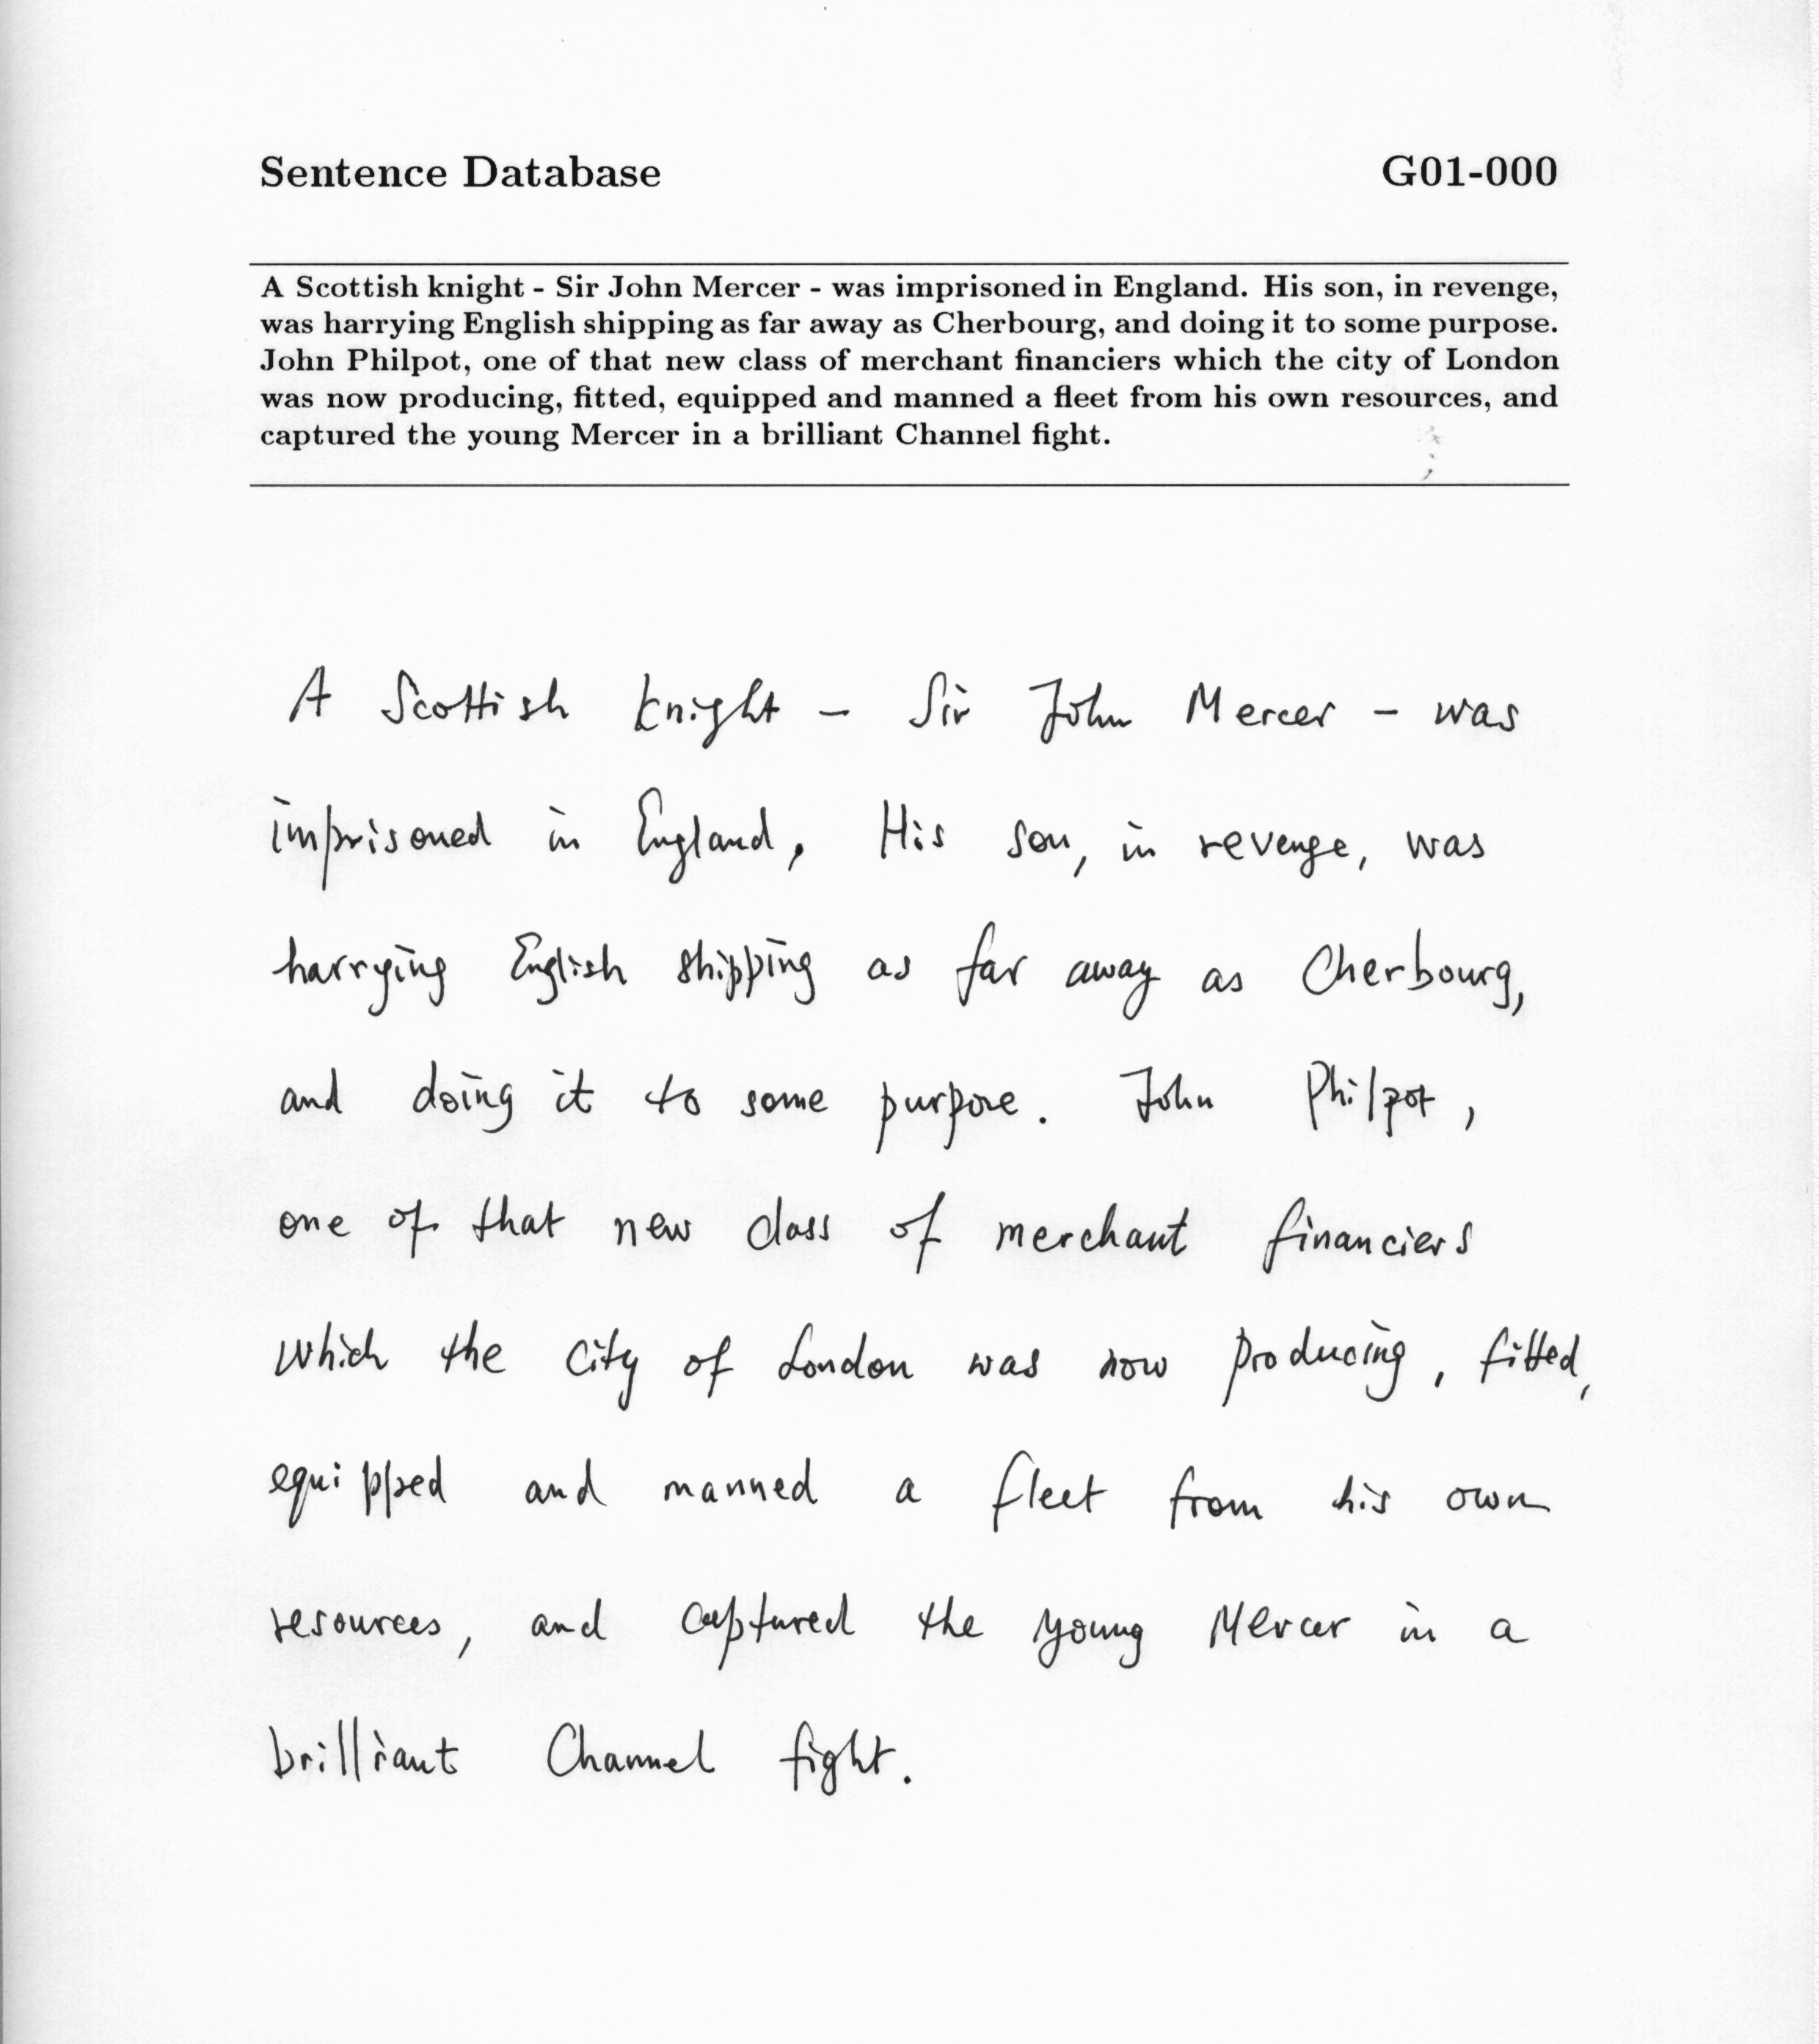 Sentence Database G01-000
A Scottish knight - Sir John Mercer - was imprisoned in England. His son, in revenge,
was harrying English shipping as far away as Cherbourg, and doing it to some purpose.
John Philpot, one of that new class of merchant financiers which the city of London
was now producing, fitted, equipped and manned a fleet from his own resources, and
captured the young Mercer in a brilliant Channel fight.
A Scottish knight - Sir John Mercer - was
imprisoned in England, His son, in revenge, was
harrying English shipping as far away as Cherbourg,
and doing it to some purpose. John Philpot,
one of that new class of merchant financiers
which the city of London was now producing, fitted,
equipped and manned a fleet from his own
resources, and captured the young Mercer in a
brilliant Channel fight.